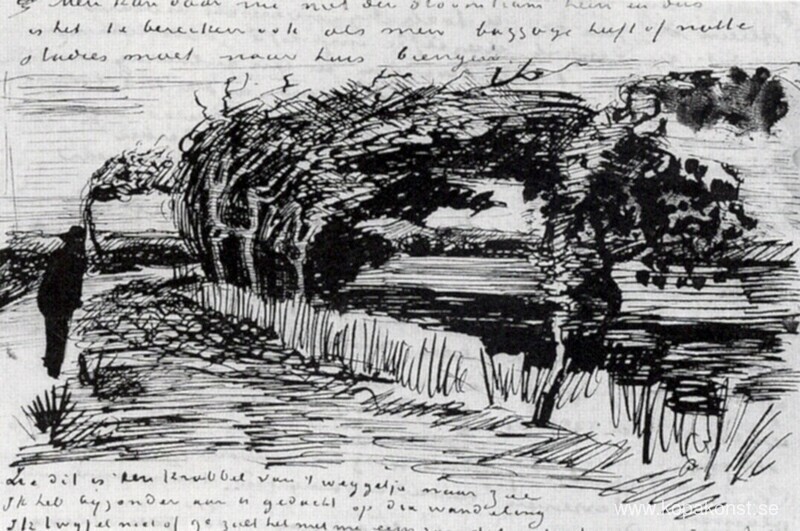 Men kan daar me met den stoomtram heen en dus
is het te bereiken ook als men baggage heeft of natte
studies moet naar huis brengen.
www.kopakonst.se
Zie dit is een krabbel van 't weggetje naar zee
Ik heb byzonder aan U gedacht op die wandeling
Ik twyfel niet of ge zult het met me eens